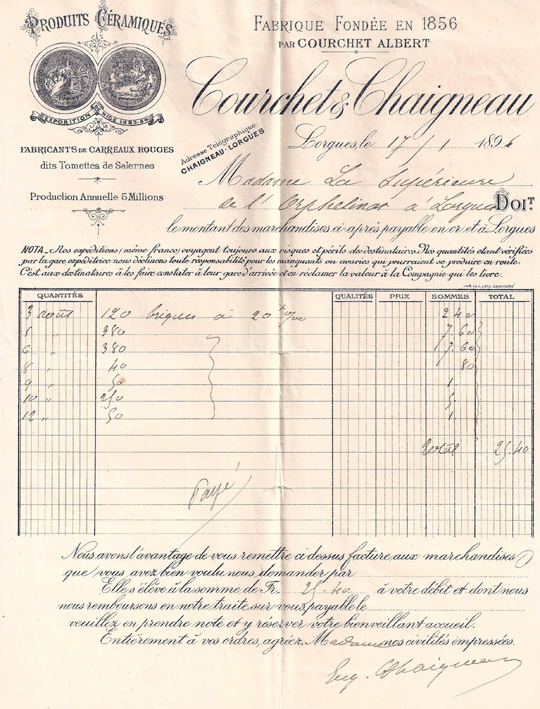 PRODUITS CÉRAMIQUES
EXPOSITION
FABRICANTS DE CARREAUX ROUGES
dits Tomettes de Salernes
Production Annuelle 5 Millions
FABRIQUE FONDÉE EN 1856
PAR COURCHET ALBERT
Courchet & Chaigneau
Adresse Télégraphique
CHAIGNEAU-LORGUES
Lorgues, le 17/1 1896
Madame La Supérieure
de l'Orphelinat à Lorgues DOIT
le montant des marchandises ci-après payable en or et à Lorgues
NOTA - Nos expéditions (même franco) voyagent toujours aux risques et périls des destinataires. Nos quantités étant vérifiées
par la gare expéditrice nous déclinons toute responsabilité pour les manquants ou avaries qui pourraient se produire en route.
C'est aux destinataires à les faire constater à leur gare d'arrivée et en réclamer la valeur à la Compagnie qui les livre.
QUANTITÉS QUALITÉS PRIX SOMMES TOTAL
3 août 120 briques à 20 f 2 40
5 " 380 7.60
6 " 380 7.60
8 " 40 80
9 " 50 1
10 " 250 5
12 " 50 1
Total 25.40
Payé
Nous avons l'avantage de vous remettre ci dessus facture aux marchandises
que vous avez bien voulu nous demander par
Elle s'élève à la somme de Fr. 25.40 à votre débit et dont nous
nous remboursons en notre traite sur vous payable le
veuillez en prendre note et y réserver votre bienveillant accueil.
Entièrement à vos ordres, agréez, Madame nos civilités empressées.
Eug. Chaigneau